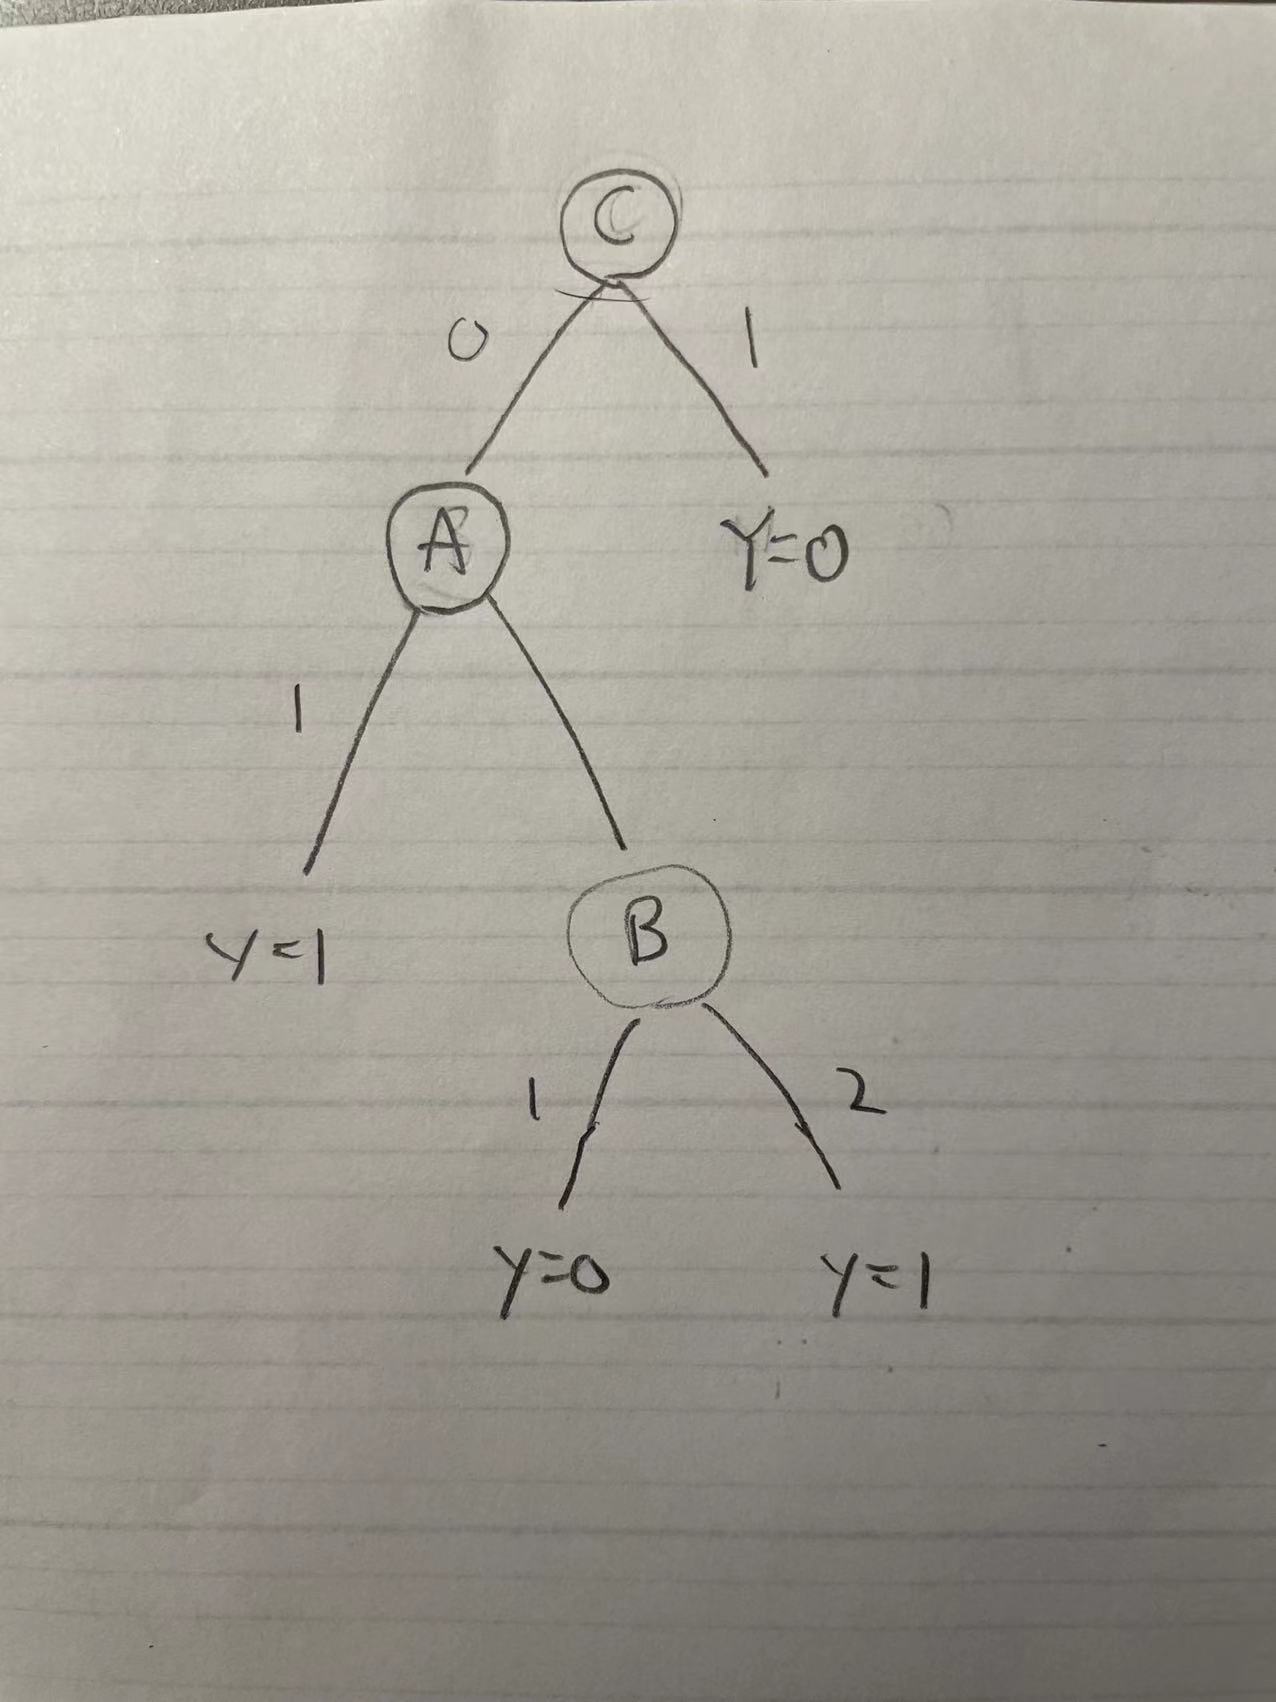 C
0 1
A Y=0
1
Y=1 B
1 2
Y=0 Y=1